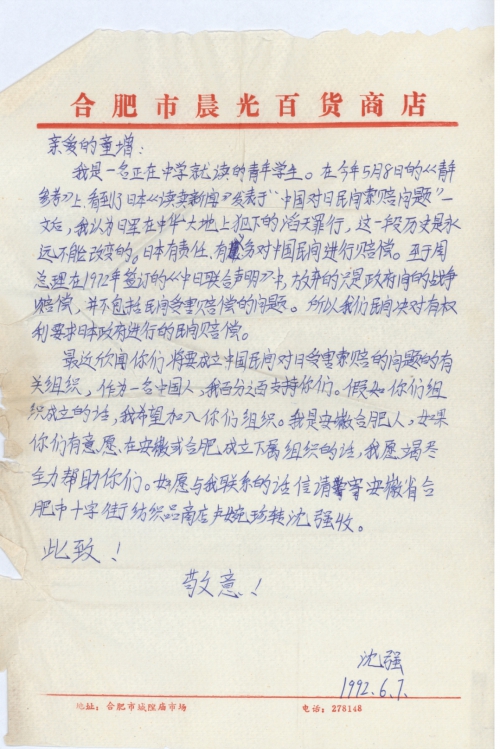 合肥市晨光百货商店
亲爱的童增：
我是一名正在中学就读的青年学生。在今年5月8日的《青年
参考》上，看到了日本《读卖新闻》发表于“中国对日民间索赔问题”一
文后，我认为日军在中华大地上犯下的滔天罪行，这一段历史是永
远不能改变的。日本有责任、有义务对中国民间进行赔偿。至于周
总理在1972年签订的《中日联合声明》中，放弃的只是政府间的战争
赔偿，并不包括民间受害赔偿的问题。所以我们民间决对有权
利要求日本政府进行的民间赔偿。
最近欣闻你们将要成立中国民间对日受害索赔的问题的有
关组织，作为一名中国人，我百分之百支持你们。假如你们组
织成立的话，我希望加入你们组织。我是安徽合肥人，如果
你们有意愿、在安徽或合肥成立下属组织的话，我愿竭尽
全力帮助你们。如愿与我联系的话信请寄安徽省合
肥市十字街纺织品商店卢婉珍转沈强收。
此致！
敬意！
沈强
1992.6.7.
地址：合肥市城隍庙市场 电话：278148